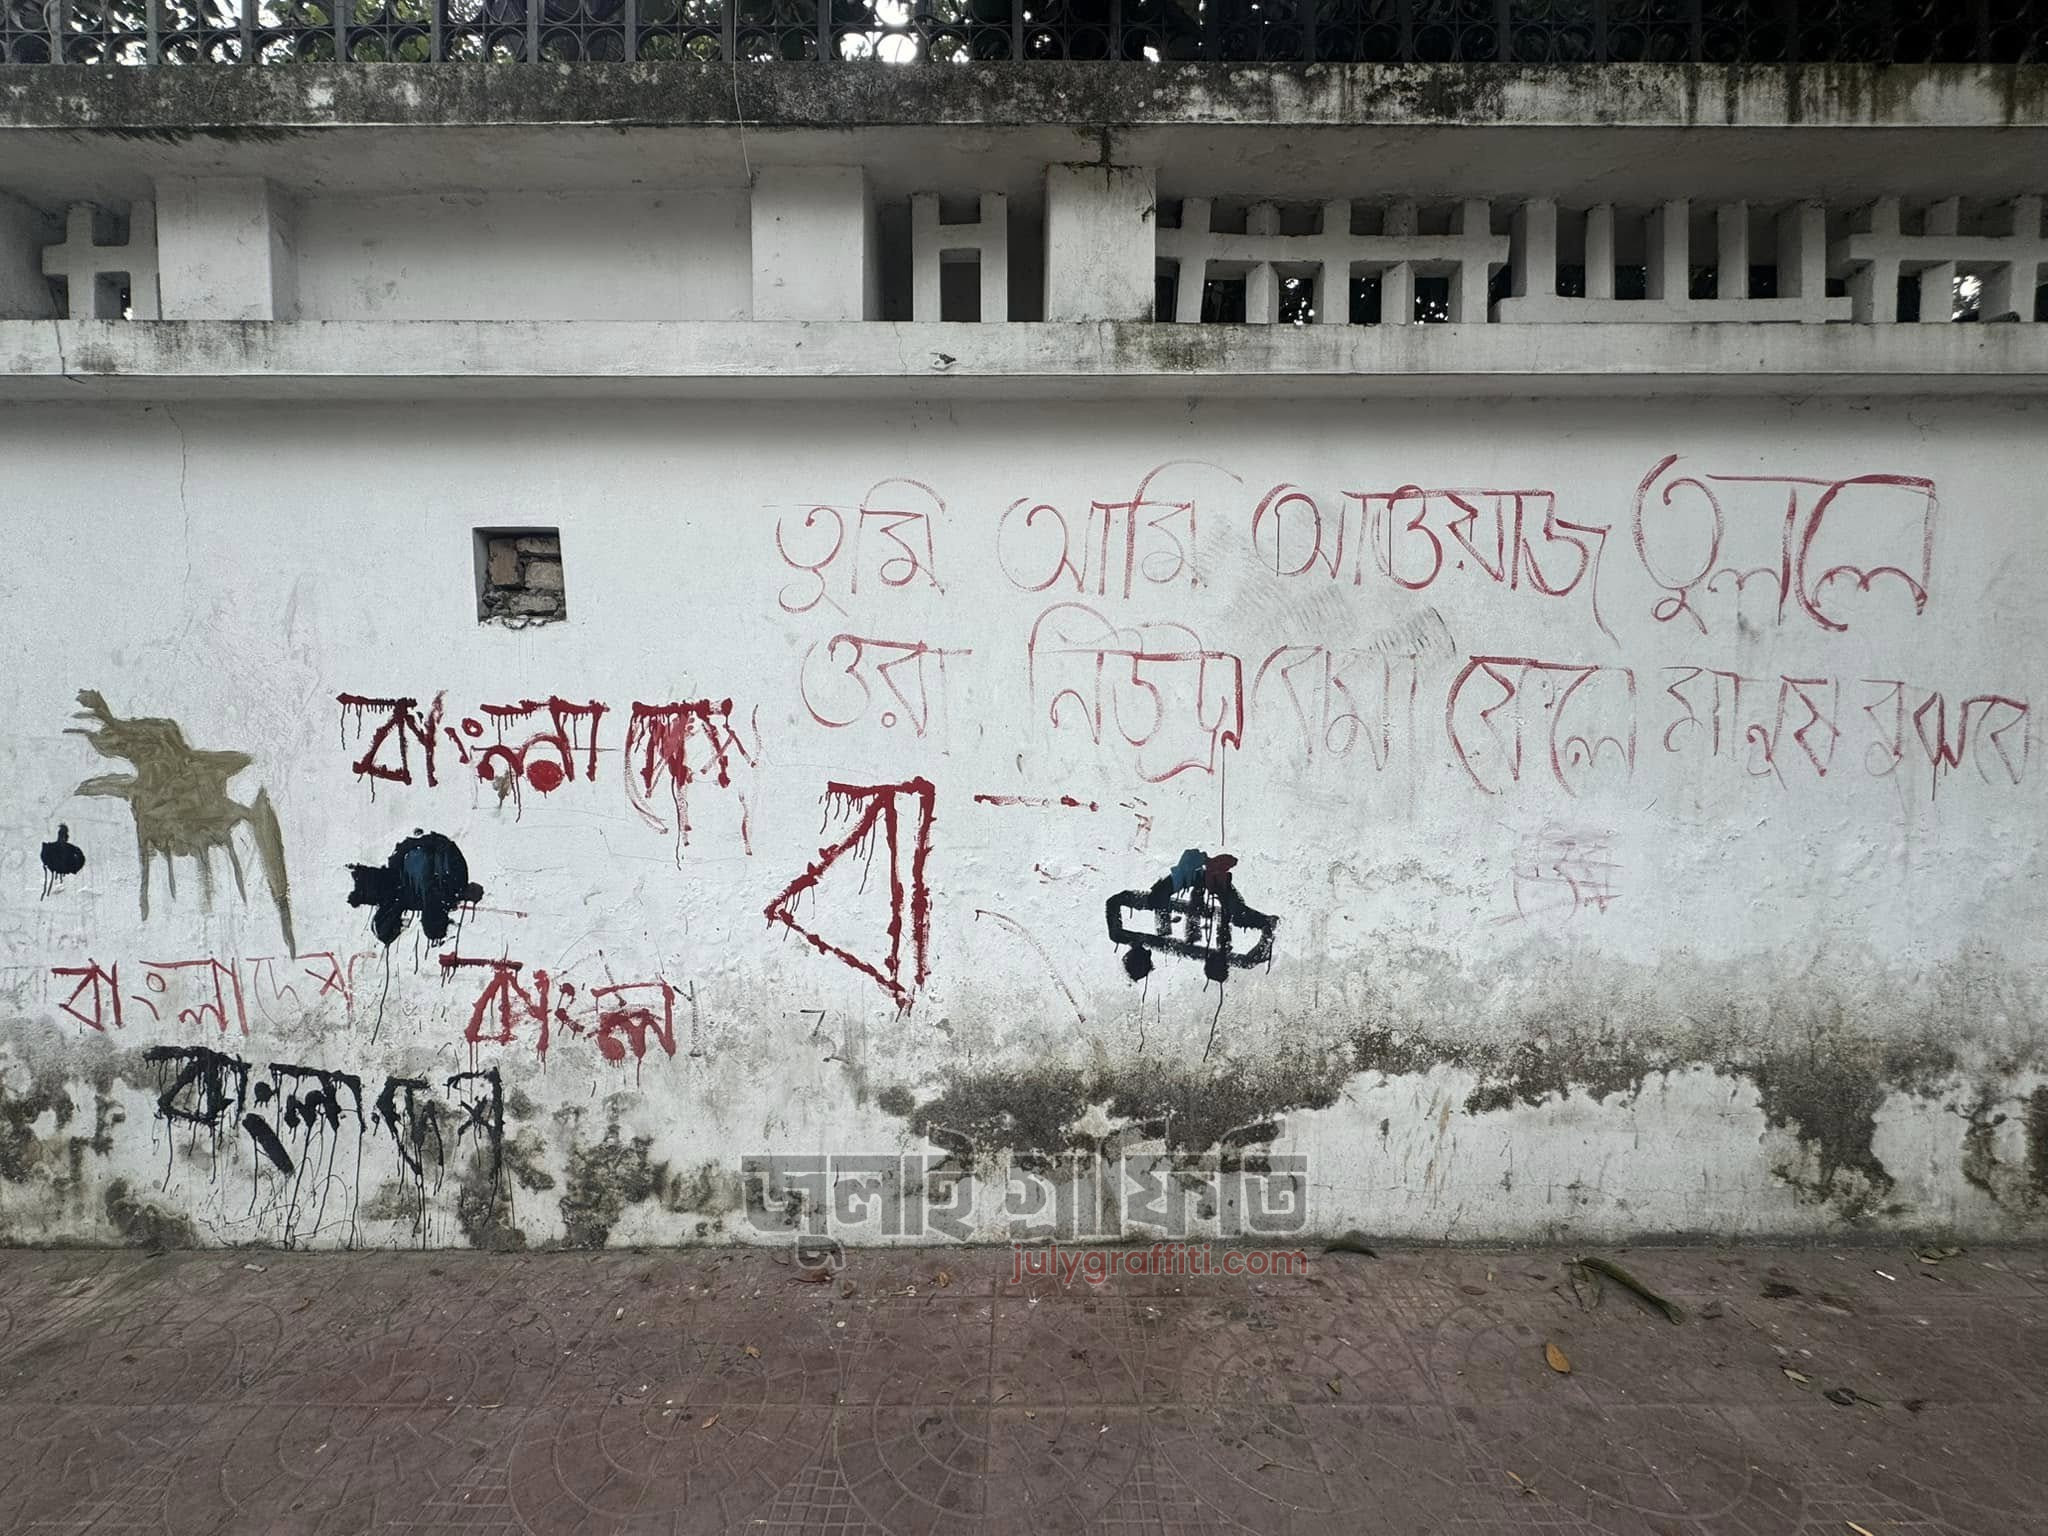 তুমি আমি আওয়াজ তুললে
ওরা নিউট্রন বোমা ফেলে মানুষ বুঝবে
বাংলা দেশ
বা
বাংলাদেশ
বাংলা
বাংলাদেশ
জুলাই গ্রাফিতি
julygraffiti.com